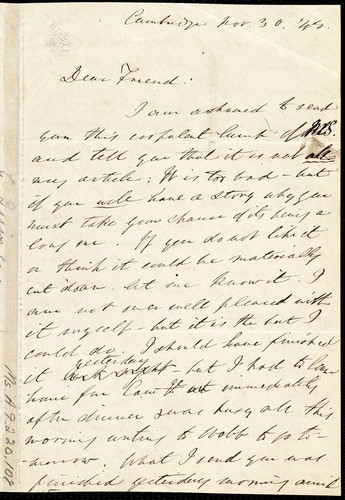 Cambridge Nov. 30. '45.
Dear Friend:
I am ashamed to send
you this corpulent lump of MS.
and tell you that it is not all
my article: It is too bad - but
if you will have a story why you
must take your chance of its being a
long one. If you do not like it
or think it could be materially
cut down - let me know it. I
am not over well pleased with
it myself - but it is the best I
could do. I should have finished
it yesterday - but I had to
home for immediately
after dinner & was busy all this
morning writing to Webb to go to-
morrow. What I send you was
finished yesterday morning amid
Ms A.9.2.20.108